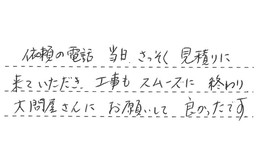 依頼の電話 当日 さっそく 見積りに
来ていただき 工事も スムーズに 終わり
大問屋さんに お願いして 良かったです